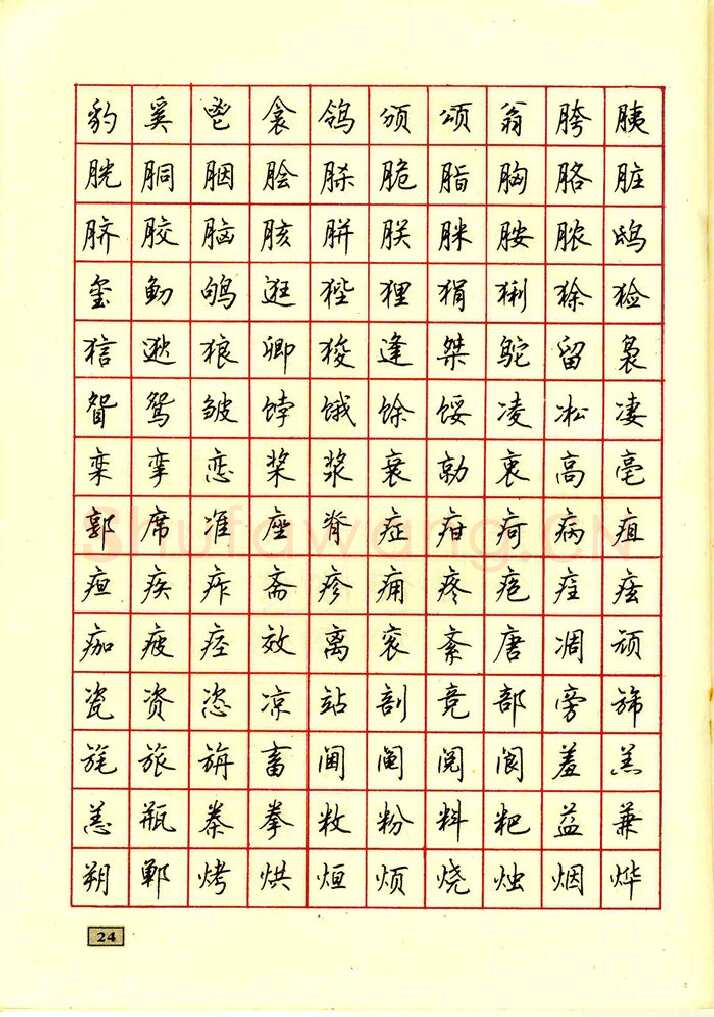 豹奚鬯衾鸰颁颂翁胯胰
胱胴胭脍脎脆脂胸胳脏
脐胶脑胲胼朕脒胺脓鸱
玺鱽鸲逛狴狸狷猁狳猃
狺逖狼卿狻逢桀鸵留袅
眢鸳皱饽饿馀馁凌凇凄
栾挛恋桨浆衰勍衷高亳
郭席准座脊症疳疴病疽
疸疾痄斋疹痈疼疱疰痃
痂疲痉效离衮紊唐凋颃
瓷资恣凉站剖竞部旁旆
旄旅旃畜阃阄阅阆羞羔
恙瓶桊拳敉粉料粑益兼
朔郸烤烘烜烦烧烛烟烨
24
Shufawang.CN